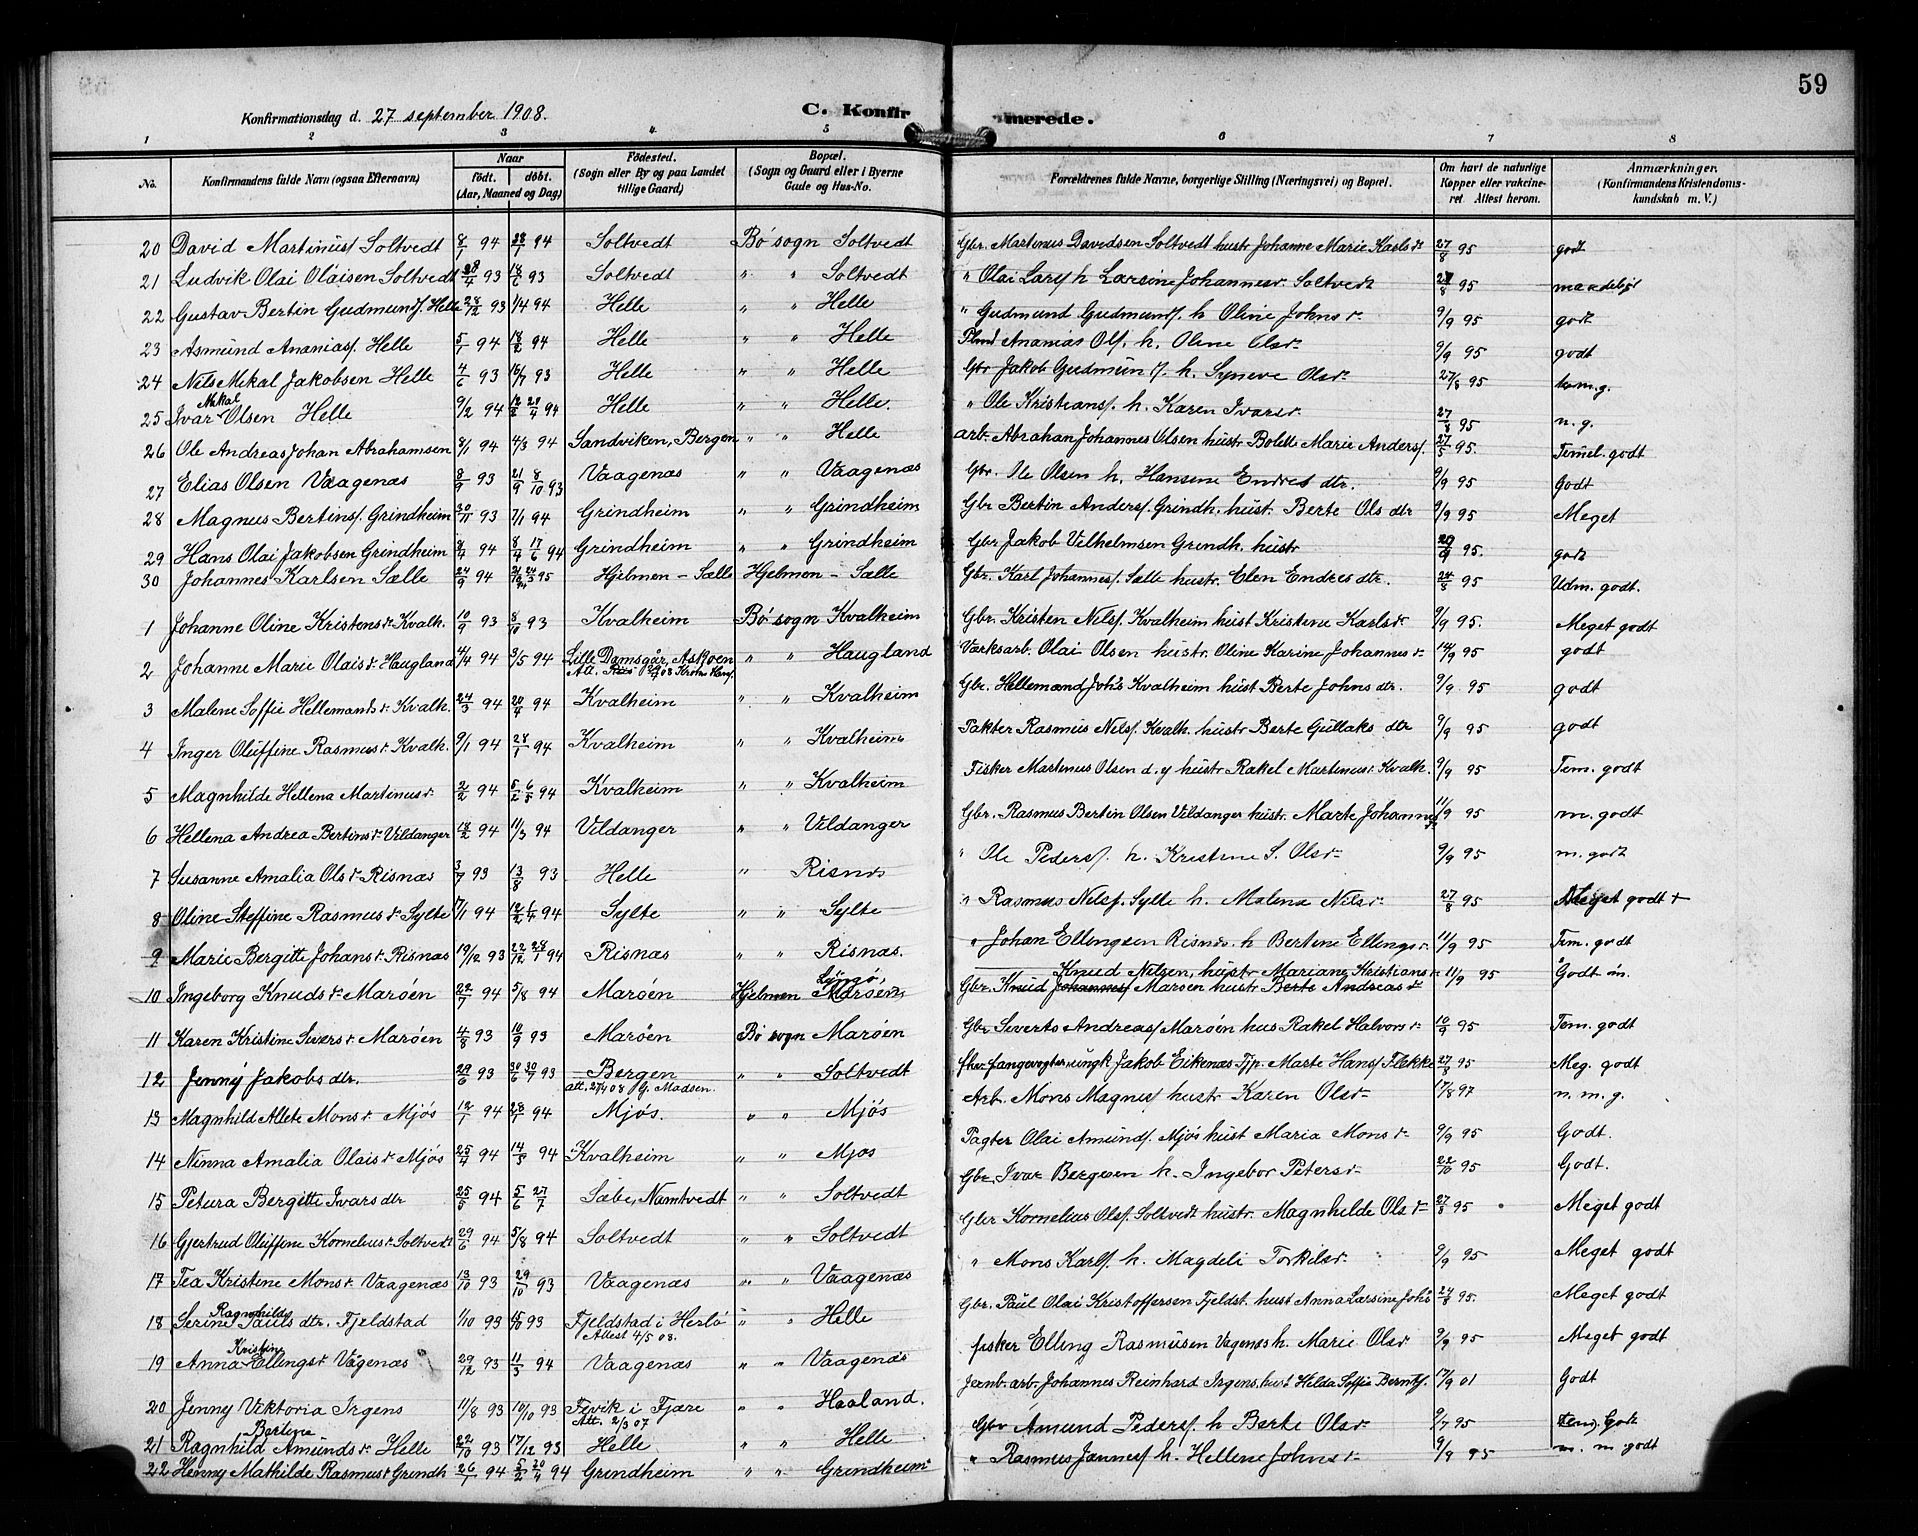 59
Konfirmationsdag d. 27 september 1908.
C. Konfirmerede.
1 2 3 4 5 6 7 8
No. Konfirmandens fulde Navn (ogsaa Efternavn) Naar født. døbt. (Aar, Maaned og Dag) Fødested. (Sogn eller By og paa Landet tillige Gaard) Bopæl. (Sogn og Gaard eller i Byerne Gade og Hus-No. Forældrenes fulde Navne, borgerlige Stilling (Næringsvei) og Bopæl. Om havt de naturlige Kopper eller vakcineret. Attest herom. Anmærkninger. (Konfirmandens Kristendomskundskab m. V.)
20 David Martinusf Soltvedt 8/1 94 28/1 94 Soltvedt Bø sogn Soltvedt Gbr. Martinus Davidsen Soltvedt hustr Johanne Marie Karlsdr 27/8 95 godt
21 Ludvik Olai Olaisen Soltvedt 28/4 93 18/6 93 Soltvedt " " Soltvedt " Olai Larsf h Larsine Johannesdr Soltvedt 27/8 95 maadeligt
22 Gustav Bertin Gudmundf. Helle 28/12 93 1/4 94 Helle " " Helle " Gudmund Gudmundf. h Oline Johnsdr 9/9 95 godt
23 Asmund Ananiasf. Helle 5/1 94 18/2 94 Helle " " Helle Ananias Olf. h. Oline Olsdr 9/9 95 godt
24 Nils Mikal Jakobsen Helle 4/6 93 16/7 93 Helle " " Helle Gbr Jakob Gudmunf. h. Syneve Olsdr 27/8 95 m.g.
25 Ivar Mikal Olsen Helle 9/2 94 94 Helle " " Helle. " Ole Kristiansf. h. Karen Ivarsdr 27/8 95 n.g.
26 Ole Andreas Johan Abrahamsen 8/1 94 4/3 94 Sandviken, Bergen " " Helle arb. Abrahan Johannes Olsen hustr Bolette Marie Andersf. 27/5 95. Temel. godt
27 Elias Olsen Vaagenæs 8/9 93 21/9 8/10 93 Vaagenæs " " Vaagenæs Gbr. Ole Olsen h. Hansine Endres dtr. 9/9 95 Godt
28 Magnus Bertinsf. Grindheim 30/11 93 7/1 94 Grindheim " " Grindheim Gbr Bertin Andersf. Grindh. hust. Berte Ols dtr 9/9 95 Meget
29 Hans Olai Jakobsen Grindheim 8/4 94 8/4 17/6 94 Grindheim " " Grindheim Gbr Jakob Vilhelmsen Grendh. hustr 95. godt
30 Johannes Karlsen Sælle 24/9 94 95 Hjelmen - Sælle Hjelmen - Sælle Gbr. Karl Johannesf. Sælle hustr. Elen Endres dtr. 24/8 95 Udm. godt.
1 Johanne Oline Kristensdr Kvalh. 10/9 93 8/10 93 Kvalheim Bø sogn Kvalheim Gbr. Kristen Nilsf. Kvalheim hust Kristine Karlsdr 9/9 95. Meget godt
2 Johanne Marie Olaisdr Haugland 4/4 94 3/5 94 Lille Damsgår, Askøen " " Haugland Værksarb. Olai Olsen hustr. Oline Karine Johannesdr 14/9 95 godt
3 Malene Soffie Hellemandsdr Kvalh. 24/3 94 20/4 94 Kvalheim " " Kvalheim Gbr. Hellemand Johs Kvalheim hust Berte Johns dtr. 9/9 95 godt
4 Inger Oluffine Rasmusdr Kvalh. 9/1 94 28/1 94 Kvalheim " " Kvalheim Pakter Rasmus Nilsf. Kvalh. hustr Berte Gullaks dtr 9/9 95 godt
5 Magnhilde Hellena Martinusdr 2/2 94 5/2 6/5 94 Kvalheim " " Kvalheim Fisker Martinus Olsen d. y hustr Rakel Martinusdr Kvalh. 9/9 95 Tem. godt
6 Hellena Andrea Bertinsdr Vildanger 18/2 94 11/3 94 Vildanger " " Vildanger Gbr. Rasmus Bertin Olsen Vildanger hustr. Marte Johannesf. 11/9 95 m. godt
7 Susanne Amalia Olsdr Risnæs 3/7 93 13/8 93 Helle " Risnæs " Ole Pedersf. h. Kristine S. Olsdr 9/9 95 m. godt
8 Oline Steffine Rasmusdr Sylte 17/1 94 18/2 1/4 94 Sylte " " Sylte " Rasmus Nilsf. Sylte h. Malena Nilsdr 27/8 95 Meget godt +
9 Marie Bergitte Johansdr Risnæs 19/12 93 22/12 28/1 94 Risnæs " " Risnæs. " Johan Ellingsen Risnæs. h Bertine Ellingsdr 11/9 95 Tem. godt
10 Ingeborg Knudsdr Marøen 22/7 94 5/8 94 Marøen Hjelmen Marøen Knud Nilsen, hustr Mariane Kristiansdr 11/9 95 Godt
Gbr. Knud Johannesf Marøen hustr Berte Andreasdr
11 Karen Kristine Siversdr Marøen 4/8 93 10/9 93 Marøen Bø sogn Marøen Gbr Siverts Andreasf Marøen hus Rakel Halvorsdr 10/9 95 Tem. godt
12 Jenny Jakobs dtr. 29/6 93 30/6 30/7 93 Bergen " " Soltvedt Jakob Eikenæs Tjp. Marte Hansf Flekke 27/8 95 Meg. godt
att. 27/4 08 G. Madsen.
13 Magnhild Allete Monsdr Mjøs 12/1 94 28/1 94 Mjøs. " " Mjøs Arb. Mons Magnesf hustr Karen Olsdr 17/8 97 n. m. g.
14 Ninna Amalia Olaisdr Mjøs 25/4 94 14/5 94 Kvalheim " " Mjøs Pagter Olai Amundf. Mjøs hust Maria Monsdr 9/9 95 Godt.
15 Petura Bergitte Ivars dtr 25/5 94 5/6 27/7 Sæbe, Namtvedt " " Soltvedt Gbr. Ivar Bergesen h. Ingebor Petersdr 22/10 95 Godt.
16 Gjertrud Oluffine Korneliusdr Soltvedt 29/6 94 5/8 94 Soltvedt " " Soltvedt Gbr Kornelius Olsf. Soltvedt hustr. Magnhilde Olsdr 27/8 95 Meget godt
17 Tea Kristine Monsdr. Vaagenæs 13/10 93 29/10 93 Vaagenæs " " Vaagenæs " Mons Karlf h. Magdeli Torkilsdr 9/9 95 Meget godt
18 Serine Ragnhilda Pauls dtr. Fjeldstad 1/10 93 15/10 93 Fjeldstad i Herlø " " Helle Gbr. Paul Olai Kristoffersen Fjeldst. hust Anna Larsine Johs 27/8 95. Meget godt
Attest 4/5 08.
19 Anna Kristine Ellingsdr Vågenæs 29/12 93 11/3 94 Vaagenæs " " Vaagenæs fisker Elling Rasmusen Vagenæs h. Marie Olsdr 9/9 95 Meget godt
20 Jenny Viktoria Irgens 11/8 93 10/10 93 Fevik i Fjære " " Haaland. Jernb. arb. Johannes Reinhard Irgens, hust Hilda Soffie Berntf. 17/9 01 Godt
Att. 2/3 07
21 Ragnhild Bertine Amundsdr Helle 22/10 93 17/12 93 Helle " " Helle Gbr Amund Pedersf h Berte Olsdr 9/7 95 tem. Godt
22 Henny Mathilde Rasmusdr Grendh 26/1 94 5/2 20/4 94 Grindheim " " Grendheim " Rasmus Jannesf h. Hellene Johnsdr 9/9 95 m. m godt